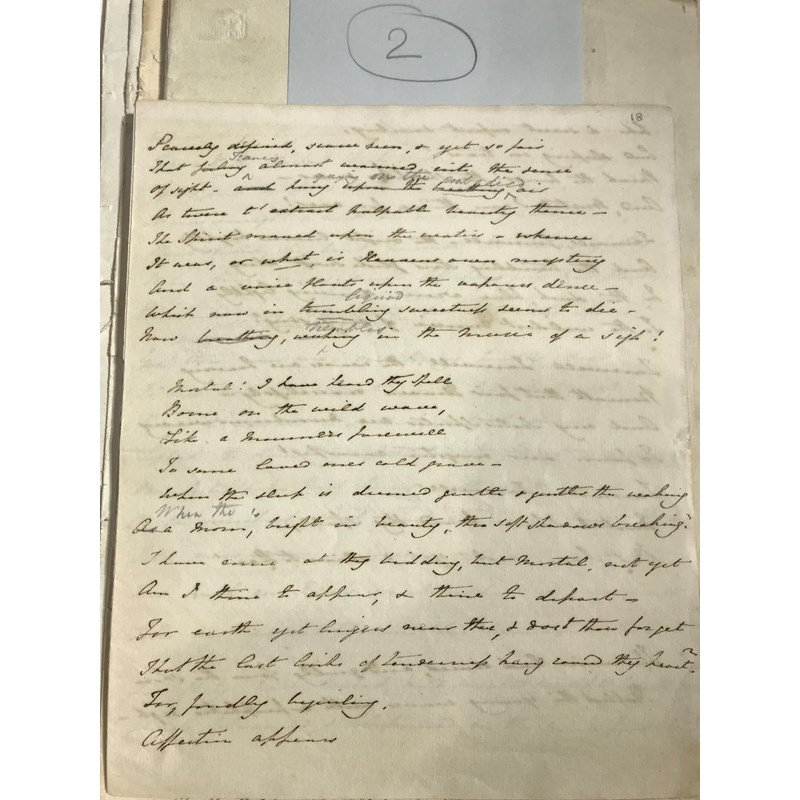 2
18
Scarcely defined, scarce seen, & yet so fair
That feeling almost warmed into the sense
of sight - and hung upon the breathing air
As twere t' extract palpable beauty thence -
The Spirit moved upon the waters - whence
It was, or what, is Heavens own mystery
And a voice floats upon the vapours dense -
liquid
Which now in trembling sweetness seems to die -
trembles
Now breathing, in the Music of a sigh!
Mortal! I have heard thy spell
Borne on the wild wave,
Like a mourners farewell
To some loved ones cold grave -
When the sleep is deemed gentle & gentler the waking
When the
As a Morn, bright in beauty, thro soft shadows breaking.
I have come at thy bidding, but Mortal, not yet
Am I thine to appear, & thine to depart -
For earth yet lingers near thee, & dost thou forget
That the last links of tenderness hang round thy heart -
For, fondly beguiling,
Affection appears